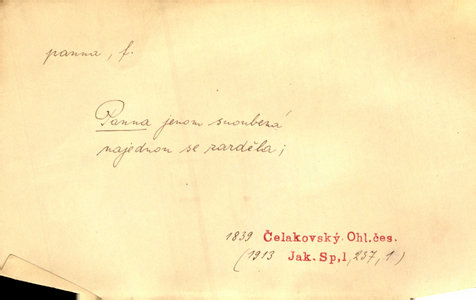 panna, f.
Panna jenom snoubená
najednou se zarděla;
1839 Čelakovský Ohl.čes.
(1913 Jak. Sp,1,237,1)